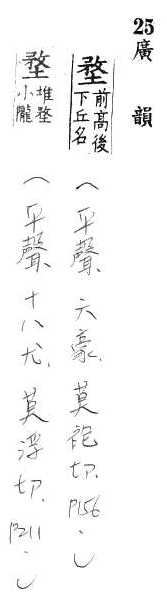 25廣韻
堥 前高後下丘名（平聲、六豪、莫袍切、P156.）
堥 堆堥小隴（平聲、十八尤、莫浮切、P211.）